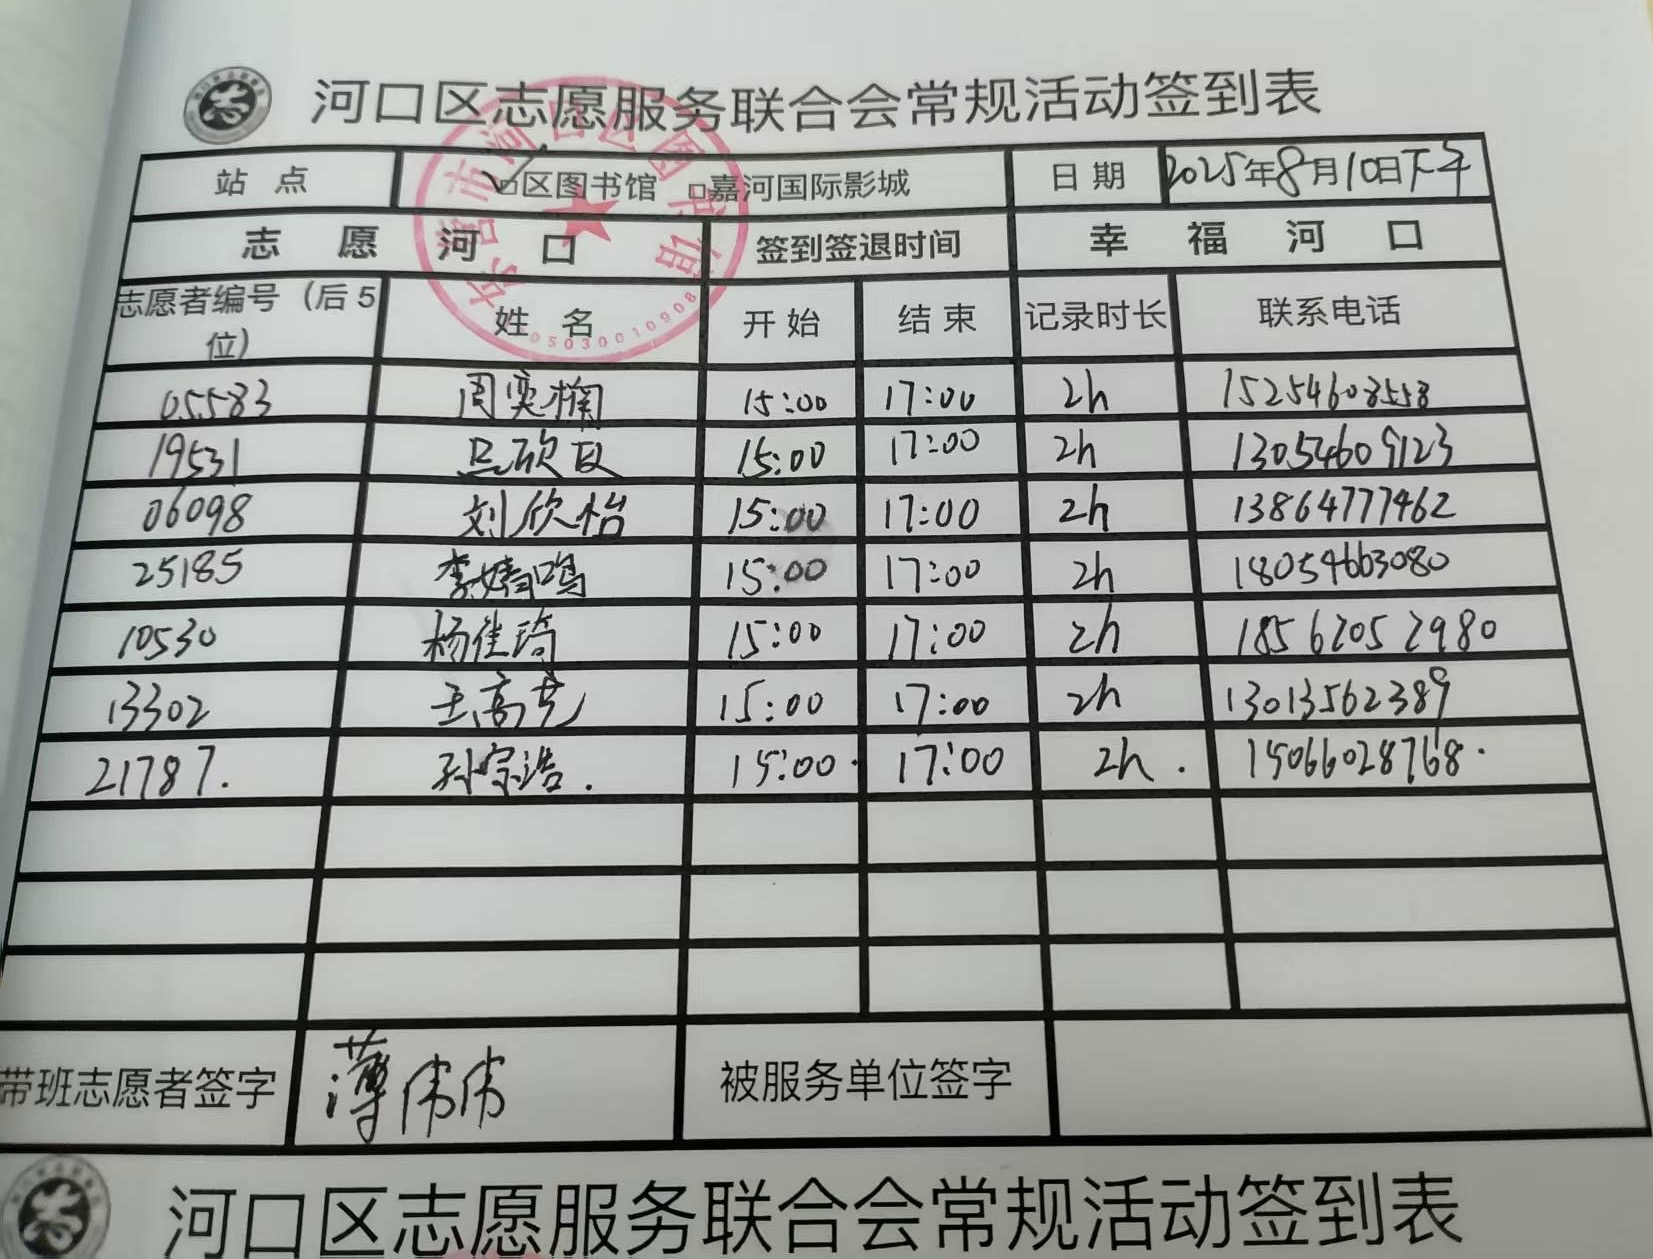 河口区志愿服务联合会常规活动签到表
站点 ☑区图书馆 □嘉河国际影城 日期 2025年8月10日下午
志愿河口 签到签退时间 幸福河口
志愿者编号（后5位） 姓名 开始 结束 记录时长 联系电话
05583 周奕 15:00 17:00 2h 15254608558
19531 吕欣 15:00 17:00 2h 13054609123
06098 刘欣怡 15:00 17:00 2h 13864777462
25185 李婧鸣 15:00 17:00 2h 18054663080
10530 杨佳琦 15:00 17:00 2h 18562052980
13302 王高 15:00 17:00 2h 13013562389
21787. 孙宗浩. 15:00. 17:00 2h. 15066028768.
带班志愿者签字 薄伟伟 被服务单位签字
河口区志愿服务联合会常规活动签到表
东营市河口区图书馆